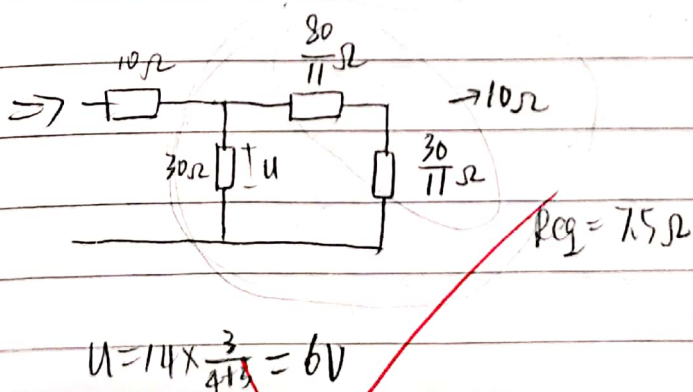 80/11 Ω
10Ω
⇒
→10Ω
30Ω + - u
30/11 Ω
Req = 7.5Ω
U=14×3/(4+3)=6V